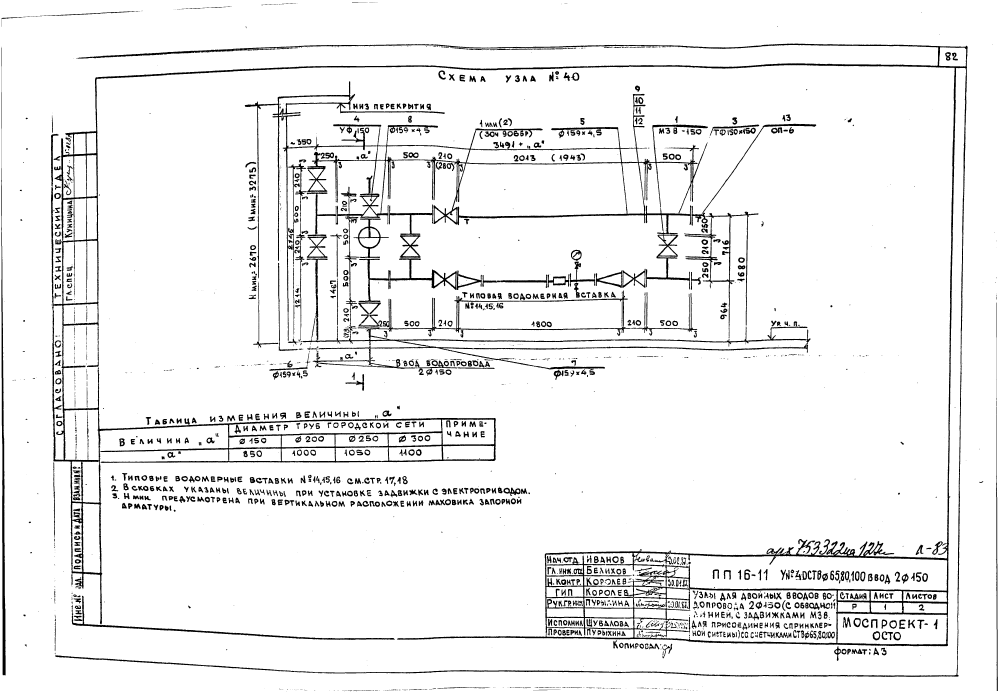 82
СХЕМА УЗЛА №40
НИЗ ПЕРЕКРЫТИЯ
4
УФ 150
8
Ø159×4,5
1 ИЛИ (2)
(30Ч 906БР)
5
Ø159×4,5
9
10
11
12
1
МЗВ-150
3
ТФ150×150
13
ОП-6
3491 + „а"
~350
250
„а"
500
210
(280)
2013 (1943)
500
H мин.= 2670 (H мин.= 3275)
210
500
210
1214
1467
210
500
500
210
250
210
250
716
964
1680
ТИПОВАЯ ВОДОМЕРНАЯ ВСТАВКА
№14,15,16
250
500
210
1800
210
500
Ур. ч. п.
„а"
ВВОД ВОДОПРОВОДА
2Ø150
6
Ø159×4,5
7
Ø159×4,5
1
ТАБЛИЦА ИЗМЕНЕНИЯ ВЕЛИЧИНЫ „а"
ВЕЛИЧИНА „а"
ДИАМЕТР ТРУБ ГОРОДСКОЙ СЕТИ
ПРИМЕ-
ЧАНИЕ
Ø150 Ø200 Ø250 Ø300
„а" 850 1000 1050 1100
1. ТИПОВЫЕ ВОДОМЕРНЫЕ ВСТАВКИ №14,15,16 СМ.СТР. 17,18
2. В СКОБКАХ УКАЗАНЫ ВЕЛИЧИНЫ ПРИ УСТАНОВКЕ ЗАДВИЖКИ С ЭЛЕКТРОПРИВОДОМ.
3. H МИН. ПРЕДУСМОТРЕНА ПРИ ВЕРТИКАЛЬНОМ РАСПОЛОЖЕНИИ МАХОВИКА ЗАПОРНОЙ
АРМАТУРЫ.
СОГЛАСОВАНО:
ТЕХНИЧЕСКИЙ ОТДЕЛ
ГЛ.СПЕЦ.
ПОДПИСЬ И ДАТА
ВЗАМ.ИНВ.№
л-83
НАЧ.ОТД. ИВАНОВ
ГЛ.ИНЖ.ОТД. БЕЛИХОВ
Н.КОНТР. КОРОЛЕВ
ГИП КОРОЛЕВ
РУК.ГР. ПУРЫХИНА
ИСПОЛНИЛ ШУВАЛОВА
ПРОВЕРИЛ ПУРЫХИНА
ПП 16-11 УN°4 ДСТВø65,80,100 ВВОД 2Ø150
УЗЛЫ ДЛЯ ДВОЙНЫХ ВВОДОВ ВО-
ДОПРОВОДА 2Ø150 (С ОБВОДНОЙ
ЛИНИЕЙ, С ЗАДВИЖКАМИ МЗВ.
ДЛЯ ПРИСОЕДИНЕНИЯ СПРИНКЛЕР-
НОЙ СИСТЕМЫ) СО СЧЕТЧИКАМИ СТВø65,80,100
СТАДИЯ ЛИСТ ЛИСТОВ
Р 1 2
МОСПРОЕКТ-1
ОСТО
КОПИРОВАЛ:
ФОРМАТ: А3